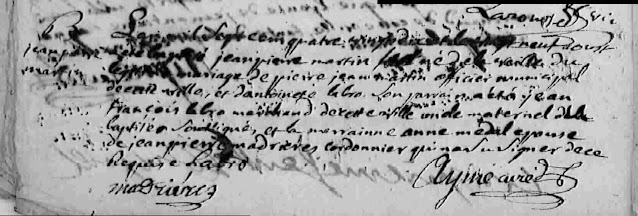 Larouss vic
B
jean pierre
martin
L'an mil Sept cent quatre vingt dix et le neuf d'oust
a été baptisé jean pierre martin fils né de la veille du
legitime mariage de pierre jean martin officier municipal
de cette ville, et d'antoinete labro. Son parrain a eté jean
françois labro marchand de cette ville oncle maternel de la
baptisée Soussigné, et la marrainne anne médal epouse
de jean pierre madrières cordonnier qui n'a Su Signer de ce
Requise Labro
madrières Aymé curé